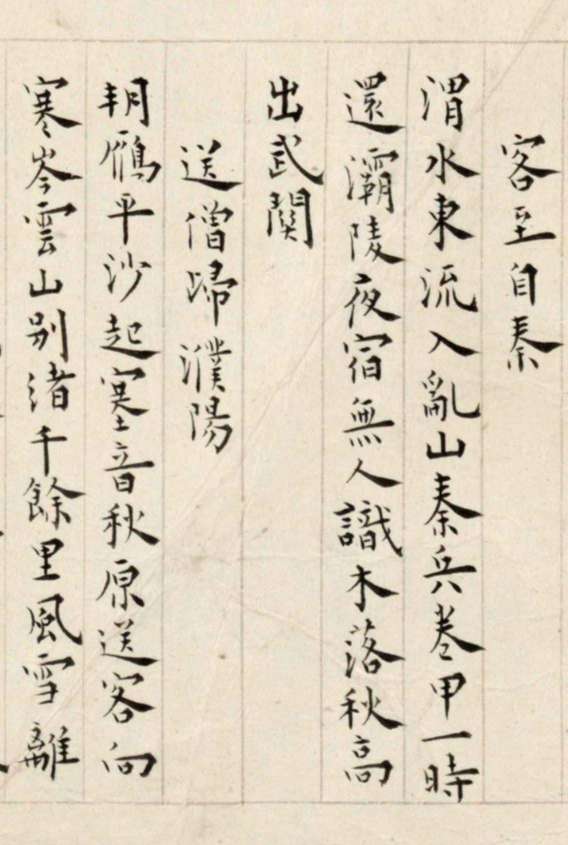 客至自秦
渭水東流入亂山秦兵卷甲一時
還灞陵夜宿無人識木落秋高
出武關
送僧歸濮陽
明鴈平沙起塞音秋原送客向
寒岑雲山別渚千餘里風雪離